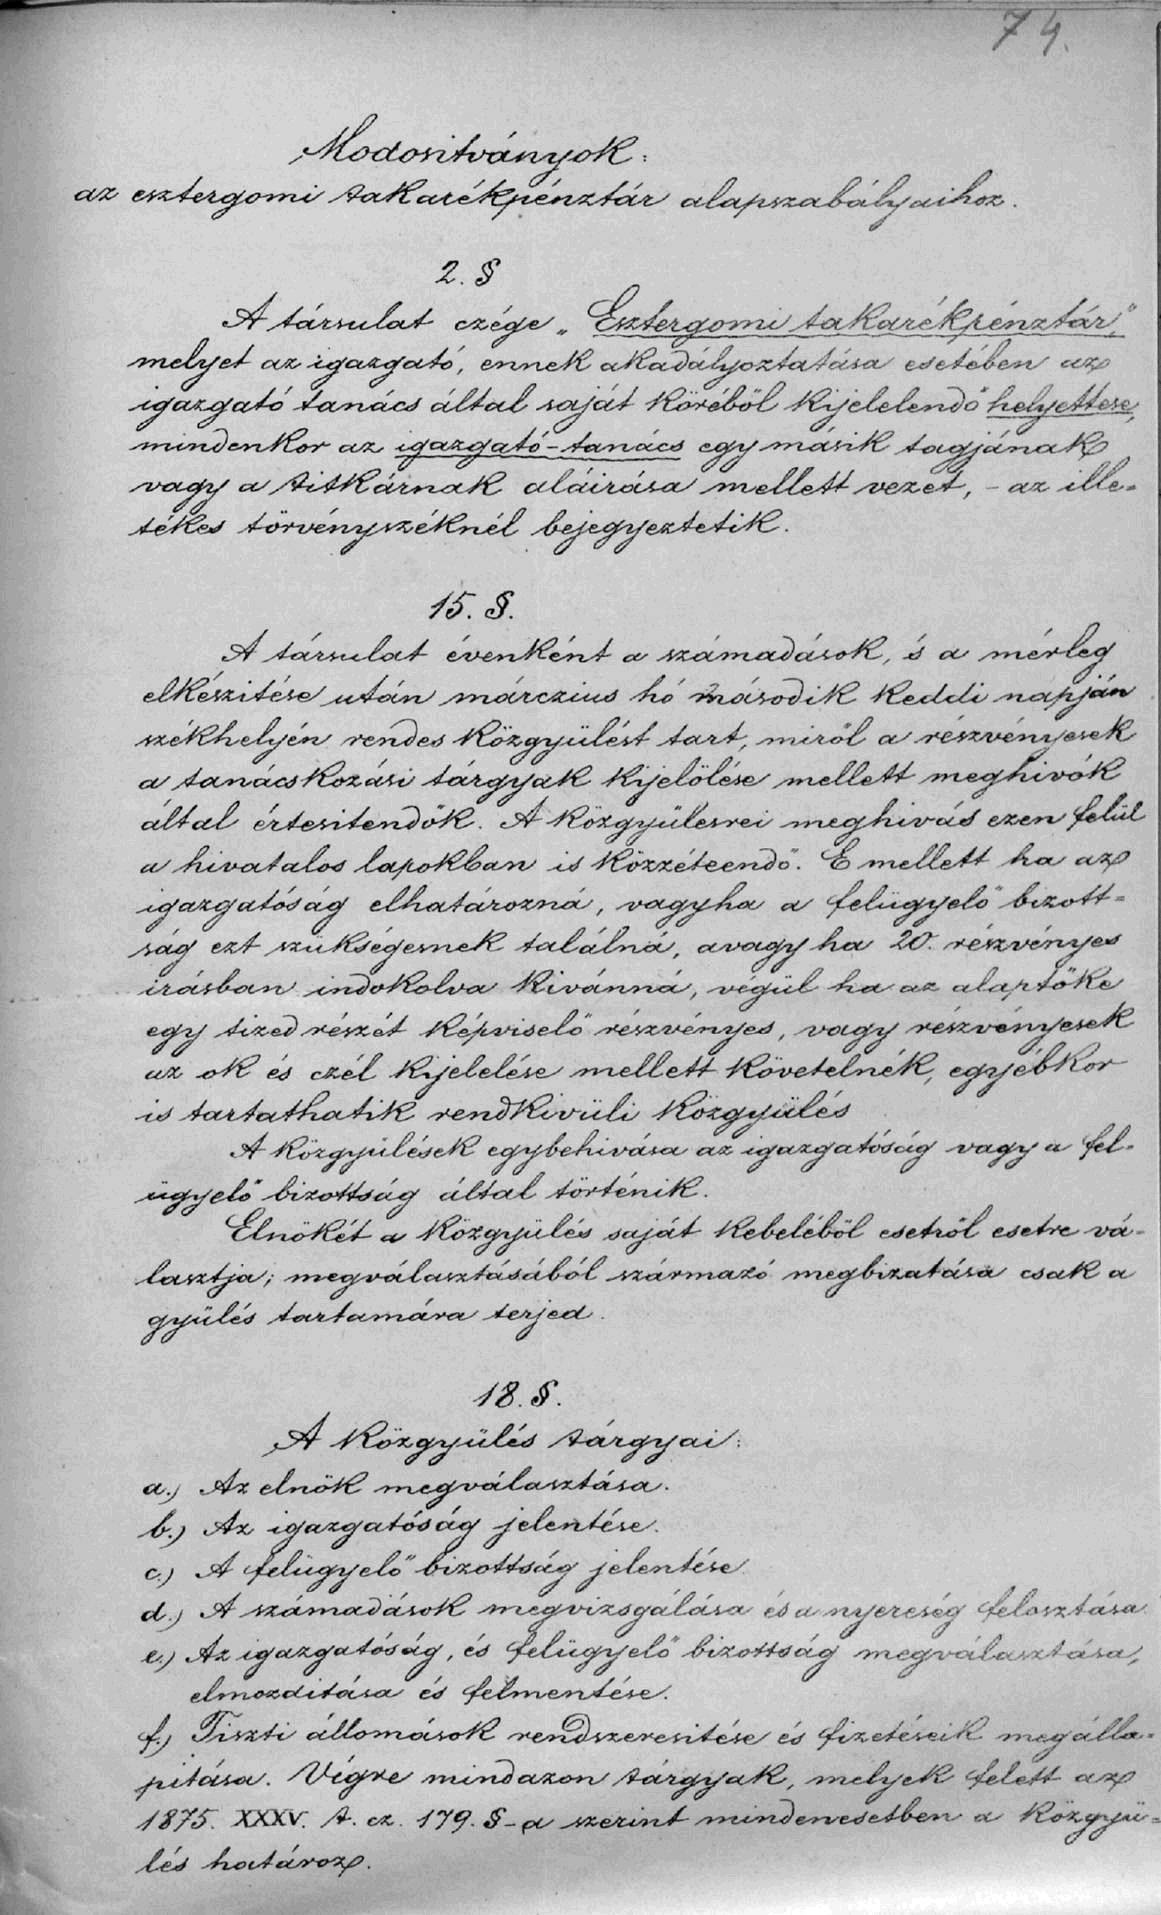 74.
Modositványok:
az esztergomi takarékpénztár alapszabályaihoz.
2. §
A társulat czége „Esztergomi takarékpénztár,"
melyet az igazgató, ennek akadályoztatása esetében az
igazgató tanács által saját köréből kijelelendő helyettese,
mindenkor az igazgató-tanács egy másik tagjának
vagy a titkárnak aláirása mellett vezet, – az ille=
tékes törvényszéknél bejegyeztetik.
15. §.
A társulat évenként a számadások, és a mérleg
elkészitése után márczius hó második keddi napján
székhelyén rendes közgyülést tart, miről a részvényesek
a tanácskozási tárgyak kijelölése mellett meghivók
által értesitendők. A közgyülesrei meghivás ezen felül
a hivatalos lapokban is közzéteendő. E mellett ha az
igazgatóság elhatározná, vagyha a felügyelő bizott=
ság ezt szükségesnek találná, avagy ha 20. részvényes
irásban indokolva kivánná, végül ha az alaptőke
egy tized részét képviselő részvényes, vagy részvényesek
az ok és czél kijelelése mellett követelnék, egyébkor
is tartathatik rendkivüli közgyülés
A közgyülések egybehivása az igazgatóság vagy a fel=
ügyelő bizottság által történik.
Elnökét a közgyülés saját kebeléből esetről esetre vá=
lasztja; megválasztásából származó megbizatása csak a
gyülés tartamára terjed.
18. §.
A közgyülés tárgyai:
a.) Az elnök megválasztása.
b.) Az igazgatóság jelentése.
c.) A felügyelő bizottság jelentése
d.) A számadások megvizsgálása és a nyereség felosztása
e.) Az igazgatóság, és felügyelő bizottság megválasztása,
elmozditása és felmentése.
f.) Tiszti állomások rendszeresitése és fizetéseik megálla=
pitása. Végre mindazon tárgyak, melyek felett az
1875. XXXV. t. cz. 179. §-a szerint mindenesetben a közgyü=
lés határoz.